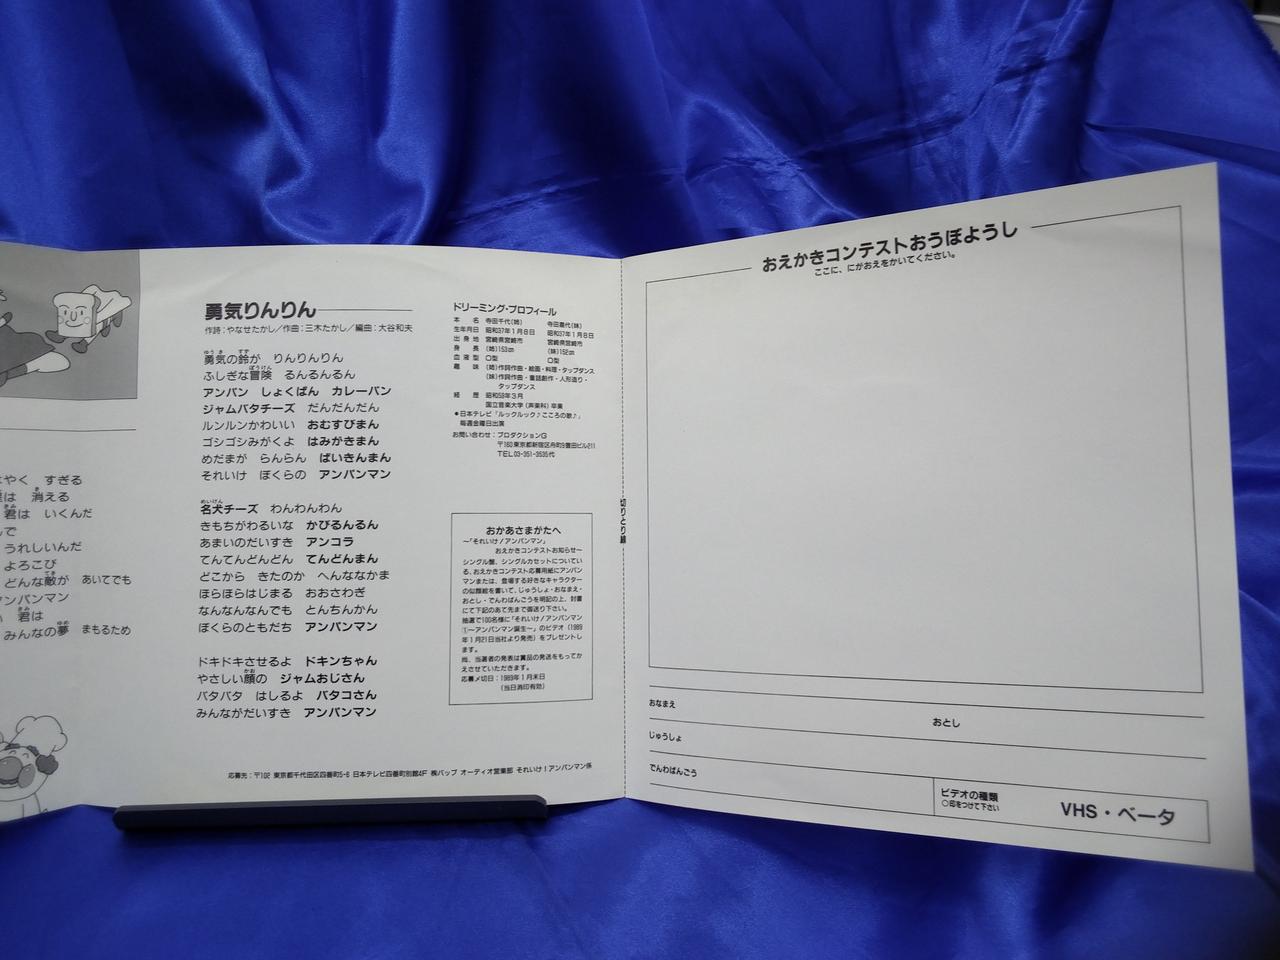 やく すぎる
は 消える
君は いくんだ
で
うれしいんだ
よろこび
どんな敵が あいてでも
アンパンマン
君は
みんなの夢 まもるため
勇気りんりん
作詩：やなせたかし／作曲：三木たかし／編曲：大谷和夫
勇気の鈴が りんりんりん
ふしぎな冒険 るんるんるん
アンパン しょくぱん カレーパン
ジャムバタチーズ だんだんだん
ルンルンかわいい おむすびまん
ゴシゴシみがくよ はみがきまん
めだまが らんらん ばいきんまん
それいけ ぼくらの アンパンマン
名犬チーズ わんわんわん
きもちがわるいな かびるんるん
あまいのだいすき アンコラ
てんてんどんどん てんどんまん
どこから きたのか へんななかま
ほらほらはじまる おおさわぎ
なんなんなんでも とんちんかん
ぼくらのともだち アンパンマン
ドキドキさせるよ ドキンちゃん
やさしい顔の ジャムおじさん
バタバタ はしるよ バタコさん
みんながだいすき アンパンマン
ドリーミング・プロフィール
本名 寺田千代(姉) 寺田嘉代(妹)
生年月日 昭和37年1月8日 昭和37年1月8日
出身地 宮崎県宮崎市 宮崎県宮崎市
身長 (姉)153㎝ (妹)152㎝
血液型 O型 O型
趣味 (姉)作詞作曲・絵画・料理・タップダンス
(妹)作詞作曲・童話創作・人形造り・
タップダンス
経歴 昭和59年3月
国立音楽大学(声楽科)卒業
●日本テレビ「ルックルック♪こころの歌♪」
毎週金曜日出演
お問い合わせ：プロダクションG
〒160東京都新宿区舟町9豊田ビル211
TEL03-351-3535代
おかあさまがたへ
〜「それいけ！アンパンマン」
おえかきコンテストお知らせ〜
シングル盤、シングルカセットについてい
る、おえかきコンテスト応募用紙にアンパン
マンまたは、登場する好きなキャラクター
の似顔絵を書いて、じゅうしょ・おなまえ・
おとし・でんわばんごうを明記の上、封書
にて下記のあて先まで御送り下さい。
抽選で100名様に「それいけ！アンパンマン
①〜アンパンマン誕生〜」のビデオ(1989
年1月21日当社より発売)をプレゼントし
ます。
尚、当選者の発表は賞品の発送をもってか
えさせていただきます。
応募〆切日：1989年1月末日
(当日消印有効)
応募先：〒102 東京都千代田区四番町5-6 日本テレビ四番町別館4F ㈱バップ オーディオ営業部 それいけ！アンパンマン係
切りとり線
おえかきコンテストおうぼようし
ここに、にがおえをかいてください。
おなまえ
おとし
じゅうしょ
でんわばんごう
ビデオの種類
○印をつけて下さい
VHS・ベータ